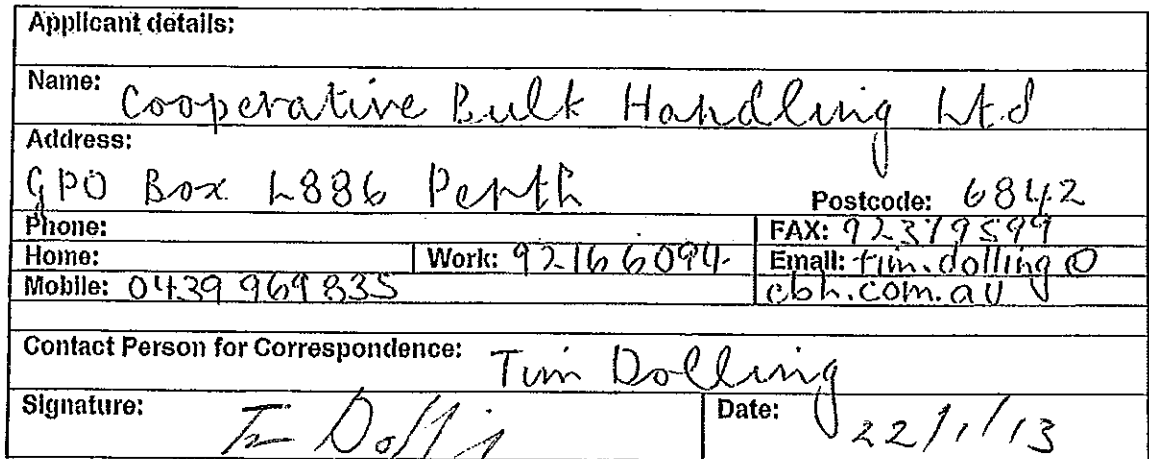 Applicant details:
Name: Cooperative Bulk Handling Ltd
Address:
GPO Box L886 Perth Postcode: 6842
Phone: FAX: 92379599
Home: Work: 9216 6094 Email: tim.dolling@
Mobile: 0439 969 835 cbh.com.au
Contact Person for Correspondence: Tim Dolling
Signature: Tim Dolling Date: 22/1/13